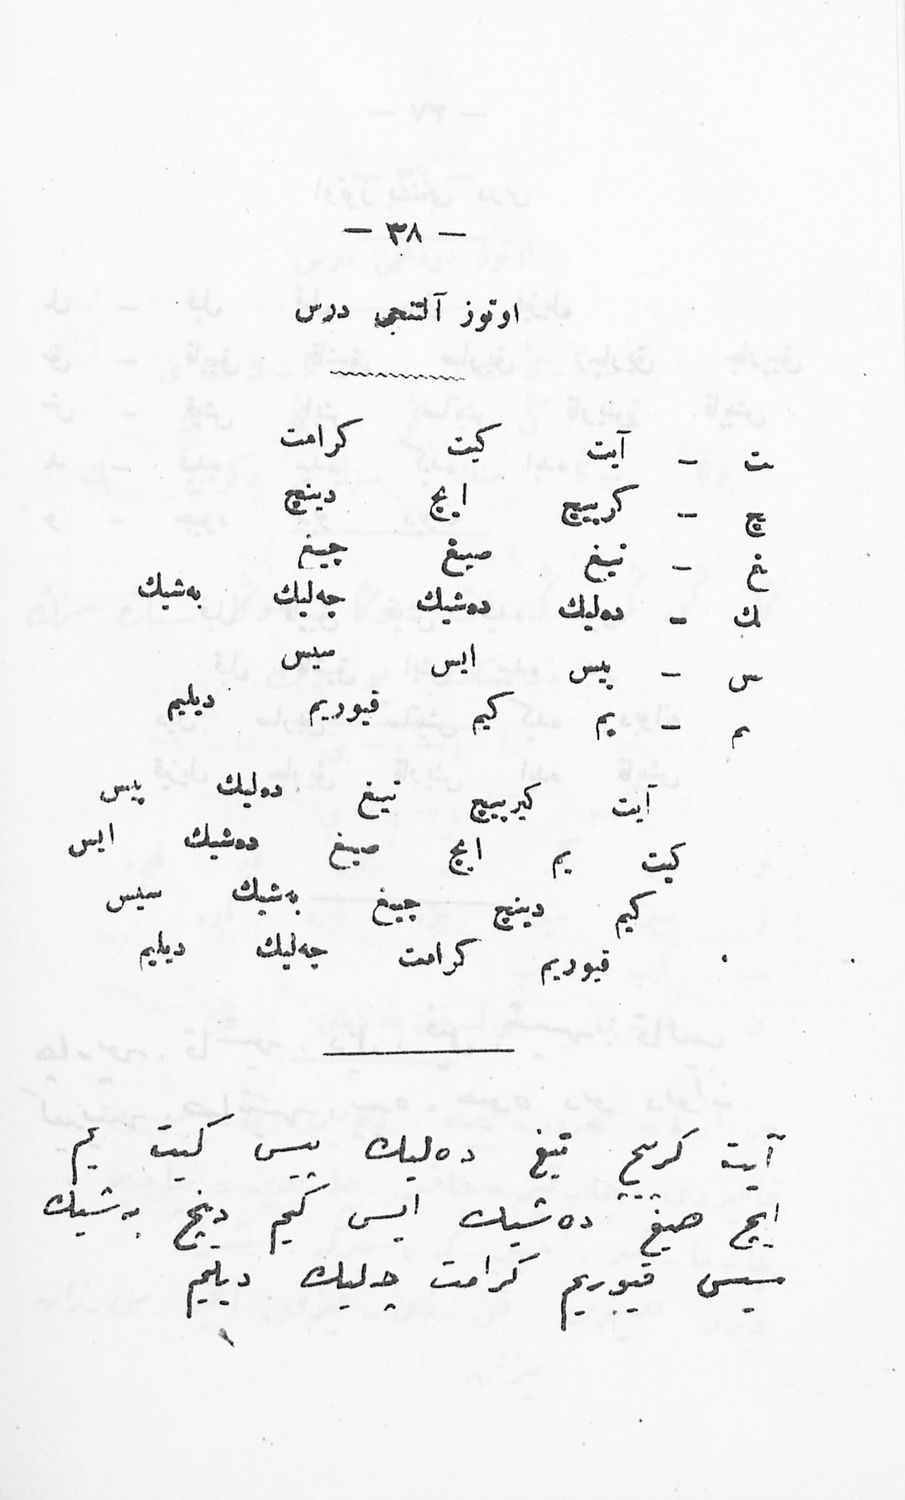 — ٣٨ —
اوتوز آلتنجی درس
ت – آیت كیت كرامت
چ – كرپیچ ایچ دینچ
غ – تیغ صیغ چیغ
ك – دەلیك دەشیك چەلیك بەشیك
س – پیس ایس سیس
م – یم كیم قیوریم دیلیم
آیت كیرپیچ تیغ دەلیك پیس
كیت یم ایچ صیغ دەشیك ایس
كیم دینچ چیغ بەشیك سیس
قیوریم كرامت چەلیك دیلیم
آیت كرپیچ تیغ دەلیك پیس كیت یم
ایچ صیغ دەشیك ایس كیم دینچ بەشیك
سیس قیوریم كرامت چەلیك دیلیم